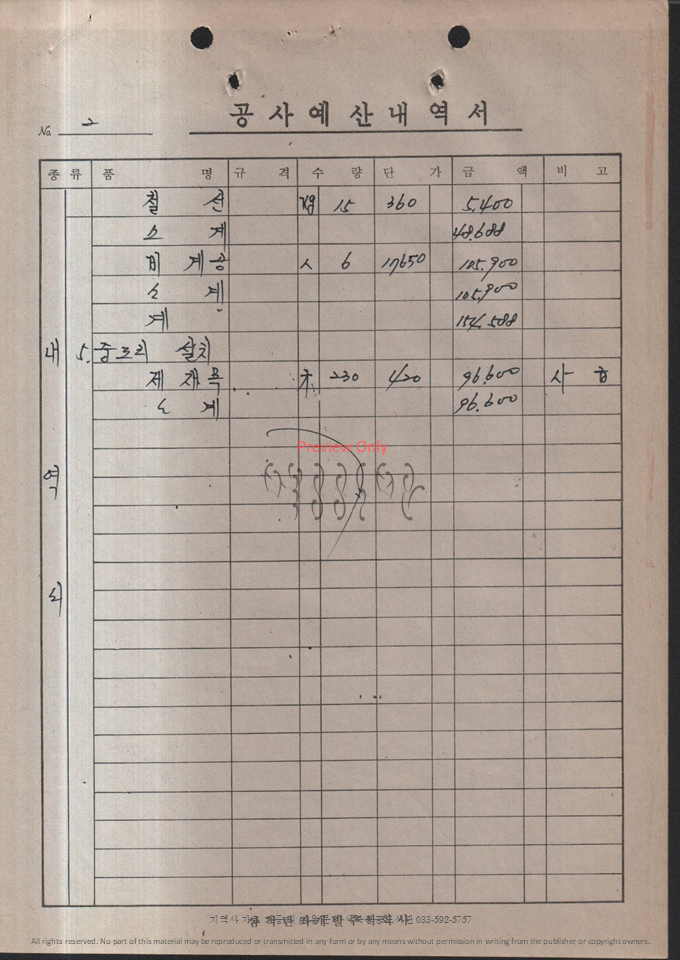 공사예산내역서
No. 2
종류 품명 규격 수량 단가 금액 비고
철선 kg 15 360 5.400
소계 48.688
비계공 人 6 17650 105.900
소계 105.900
계 154.588
내 5. 중도리 설치
제재목 才 230 420 96.600
소계 96.600
Preview Only
역
033-592-5757
All rights reserved. No part of this material may be reproduced or transmitted in any form or by any means without permission in writing from the publisher or copyright owners.